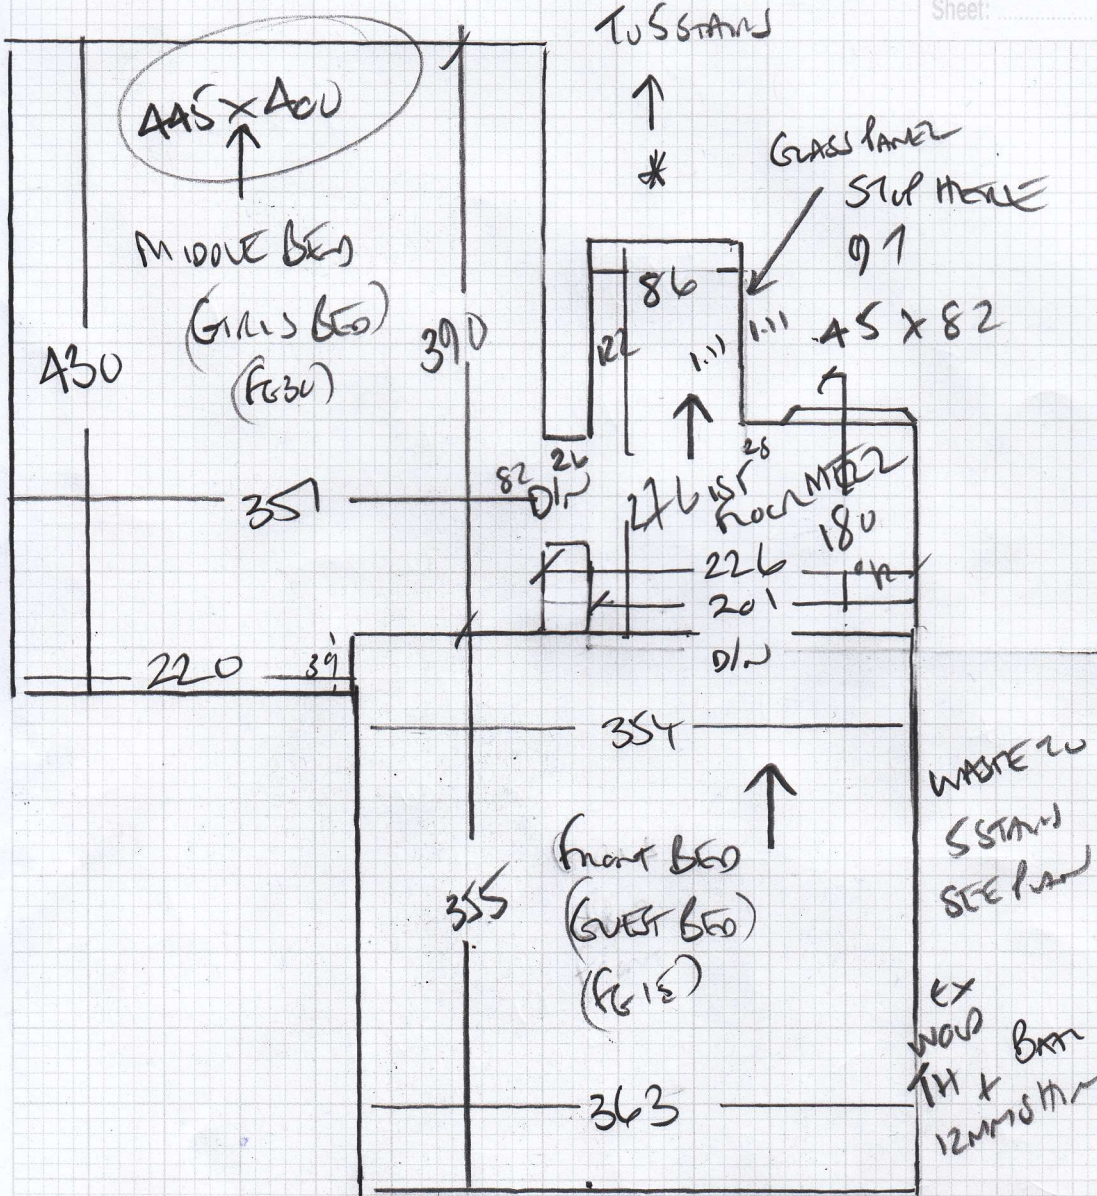 Sheet:
TO 5 STAIRS
*
445 x 400
GLASS PANEL
STOP HERE
97
45 x 82
MIDDLE BED
(GIRLS BED)
(FE30)
430
390
86
122
1.11
1.11
26
28
82
D/N
351
276
1ST
FLOOR MEZZ
180
226
201
D/N
220
39
354
WASTE TO
5 STAIRS
SEE PLAN
FRONT BED
(GUEST BED)
355
EX
WOOD
TH + BAR
12MM
363